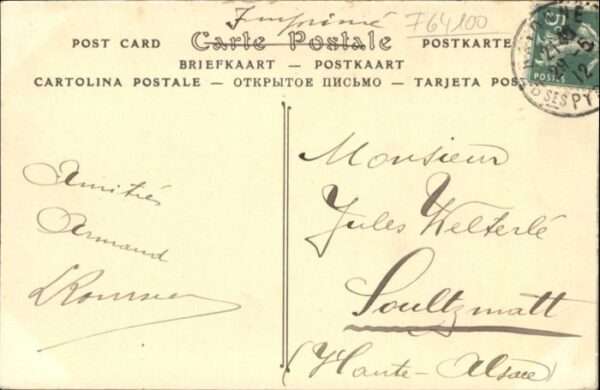 Imprimé F64100
POST CARD Carte Postale POSTKARTE
BRIEFKAART — POSTKAART
CARTOLINA POSTALE — ОТКРЫТОЕ ПИСЬМО — TARJETA POST
Amitiés
Armand
Monsieur
Jules Welterlé
Soultzmatt
(Haute-Alsace)
5
POSTES
12
BSES PY